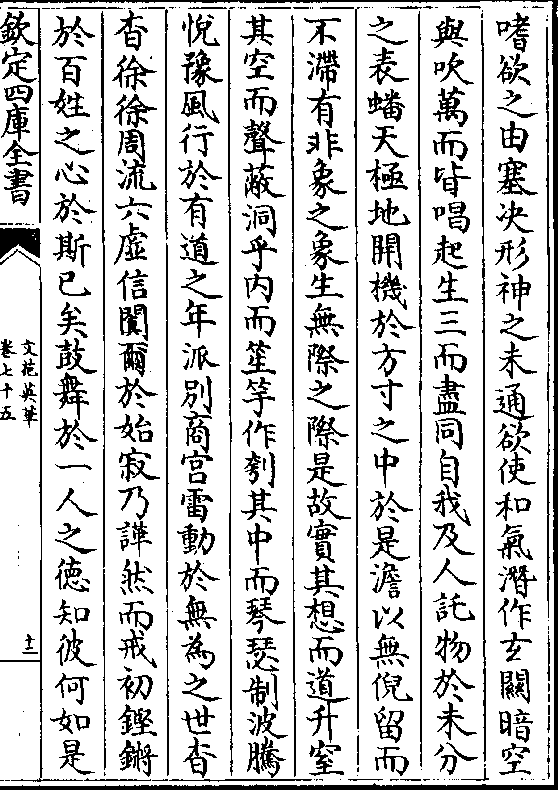 嗜欲之由塞决形神之未通欲使和氣潛作玄關暗空
與吹萬而皆唱起生三而盡同自我及人託物於未分
之表蟠天極地開機於方寸之中於是澹以無倪留而
不滯有非象之象生無際之際是故實其想而道升窒
其空而聲蔽洞乎内而笙竽作刳其中而琴瑟制波騰
悅豫風行於有道之年派别商宫雷動於無為之世杳
杳徐徐周流六虚信闃爾於始寂乃譁然而戒初鏗鏘
於百姓之心於斯已矣鼓舞於一人之徳知彼何如是
欽定四庫全書
文苑英華
卷七十五
十二